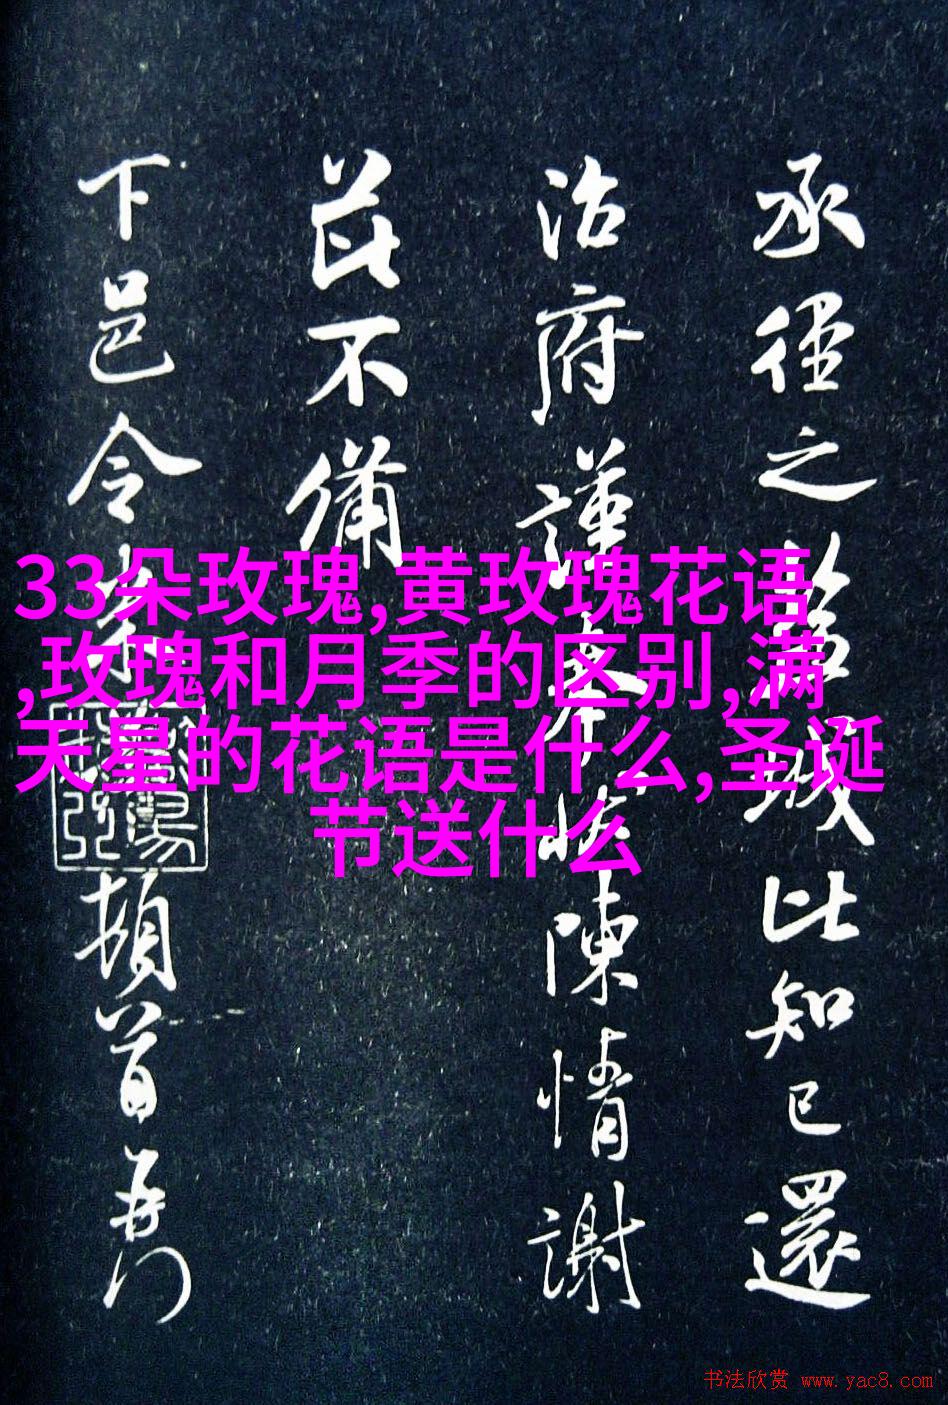 33朵玫瑰,黄玫瑰花语
,玫瑰和月季的区别,满
天星的花语是什么,圣诞
节送什么
承徑之城比知已還
治府謹奉陳情謝
茲不備
下邑令頓首
书法欣赏 www.yac8.com